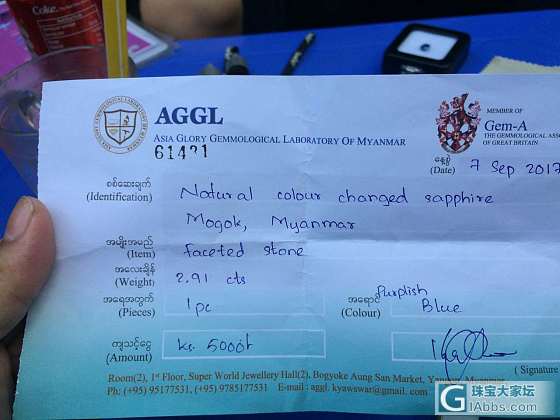 Coke
AGGL
ASIA GLORY GEMMOLOGICAL LABORATORY OF MYANMAR
61421
MEMBER OF
Gem-A
THE GEMMOLOGICAL ASS
OF GREAT BRITAIN
နေ့စွဲ
(Date) 7 Sep 2017
စစ်ဆေးချက်
(Identification) Natural colour changed sapphire
Mogok, Myanmar
အမျိုးအမည်
(Item) faceted stone
အလေးချိန်
(Weight) 2.91 cts
အရေအတွက်
(Pieces) 1pc
အရောင်
(Colour) purplish
Blue
ကျသင့်ငွေ
(Amount) ks. 5000t
(Signature
Room(2), 1st Floor, Super World Jewellery Hall(2), Bogyoke Aung San Market, Yangon, Myanmar
Ph: (+95) 95177531, (+95) 9785177531 E-mail : aggl.kyawswar@gmail.com
珠宝大家坛
GIAbbs.com